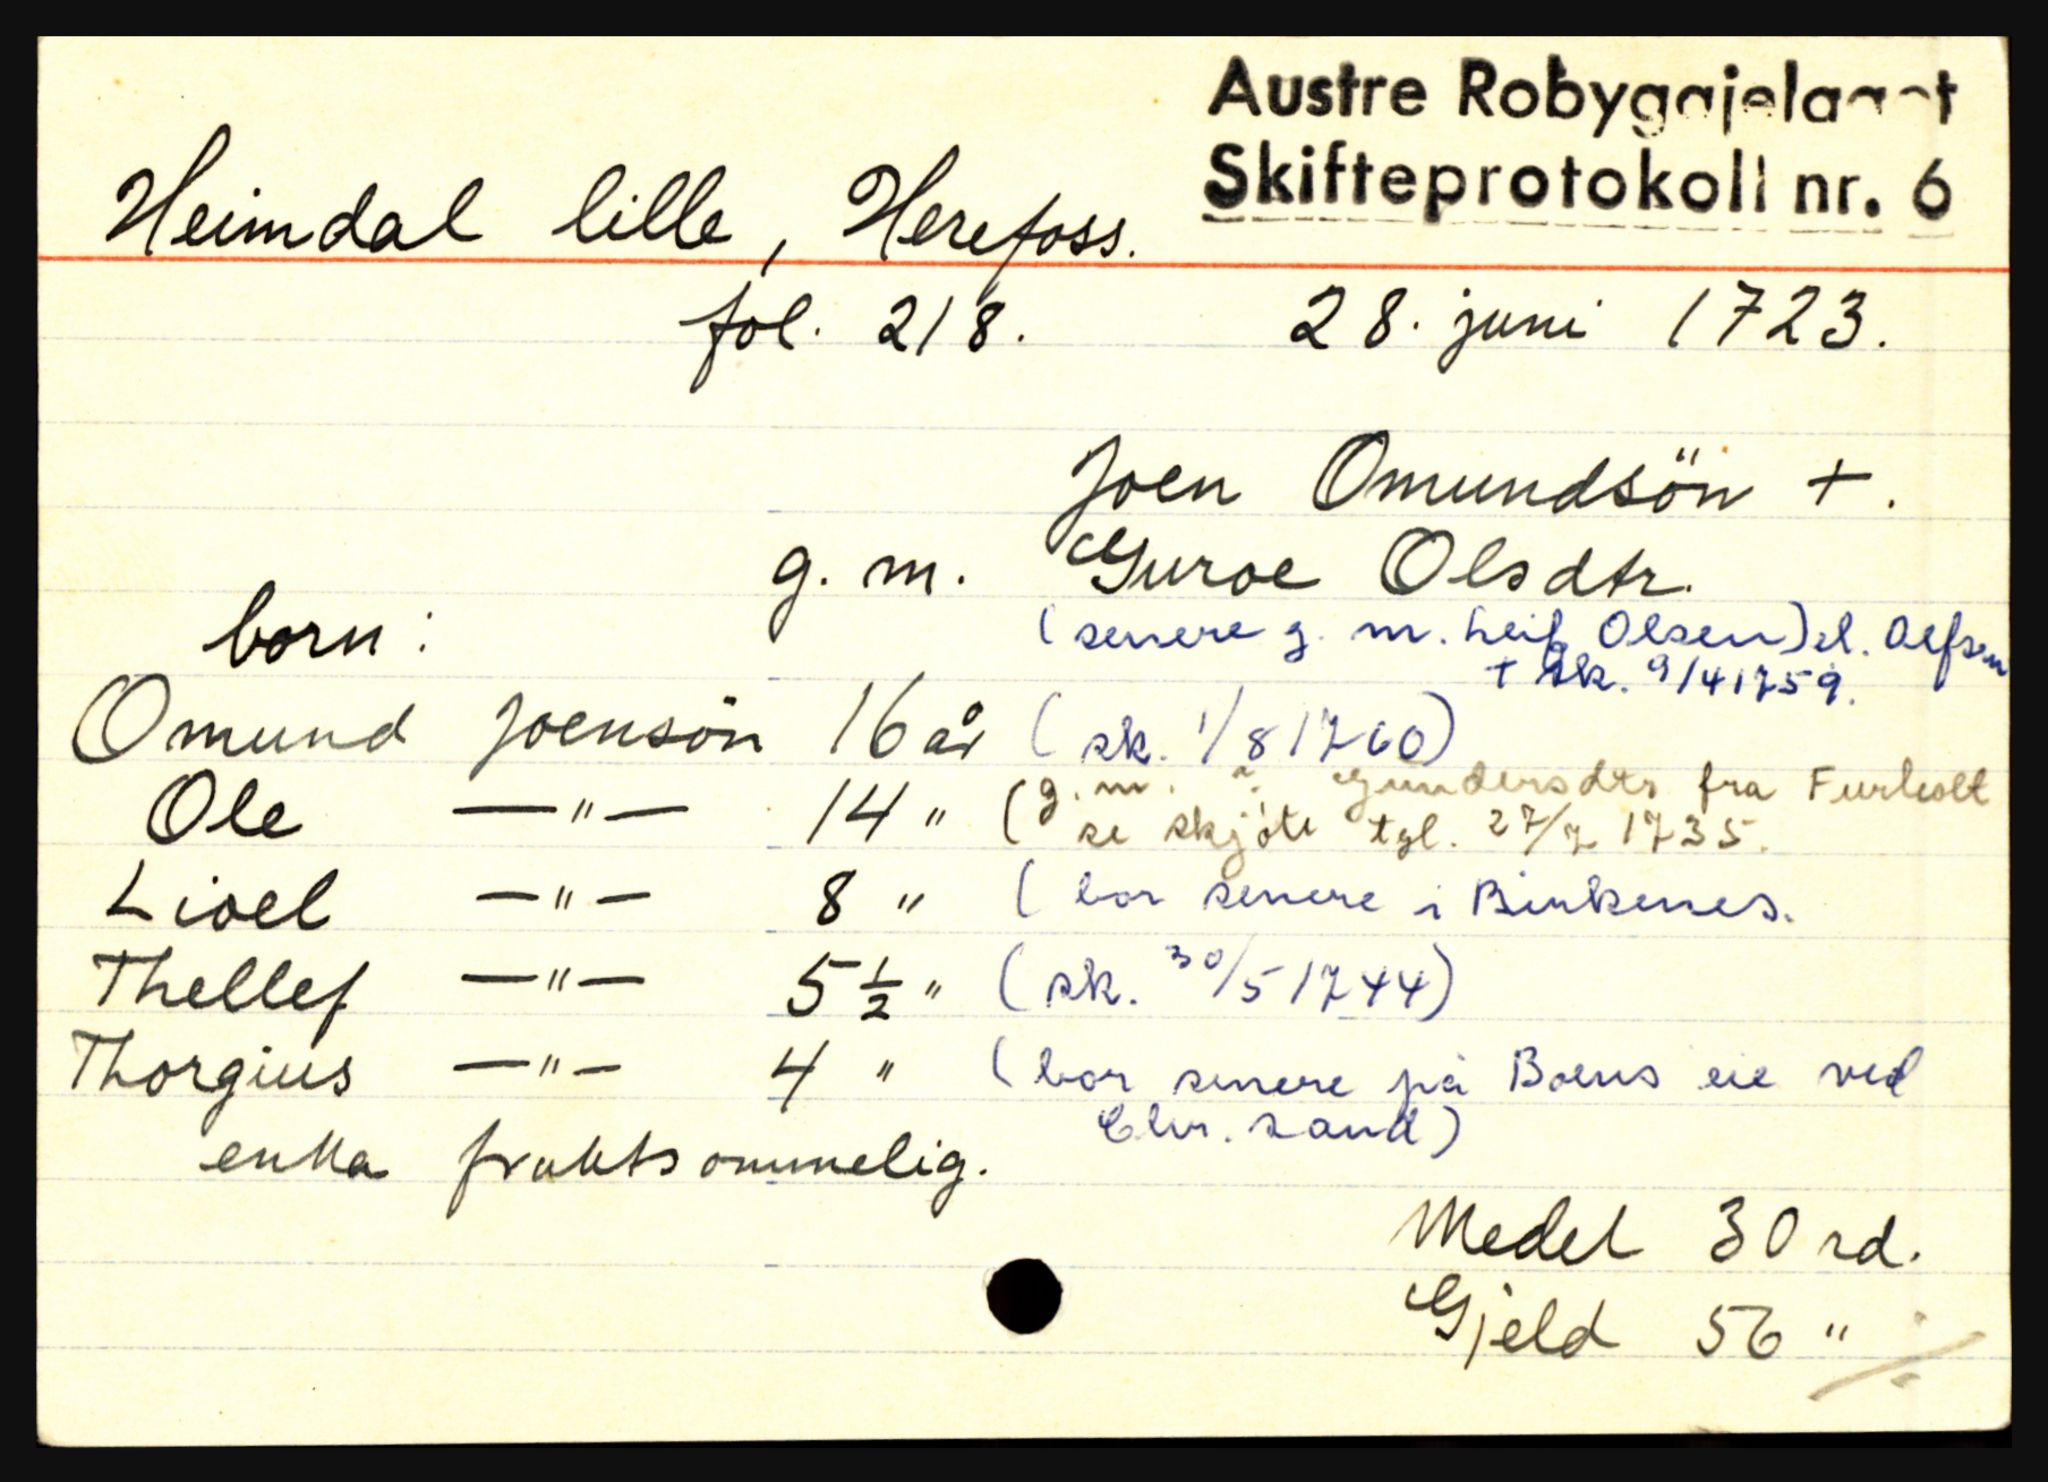 Austre Robyggjelaget
Skifteprotokoll nr. 6
Heimdal lille, Herefoss.
fol. 218. 28. juni 1723.
Joen Omundsön +.
g. m. Guroe Olsdtr.
(senere g. m. Leif Olsen) el. Olfsen
+ sk. 9/4 1759.
born:
Omund Joensön 16 år (sk. 1/8 1760)
Ole —"— 14 " (g. m. ? Gundersdtr fra Furholt
se skjöte tgl. 27/7 1735.
Lioel —"— 8 " (bor senere i Birkenes.
Thellef —"— 5 1/2 " (sk. 30/5 1744)
Thorgius —"— 4 " (bor senere på Boens eie ved
Chr. sand)
enka fruktsommelig.
Medel 30 rd.
Gjeld 56 "